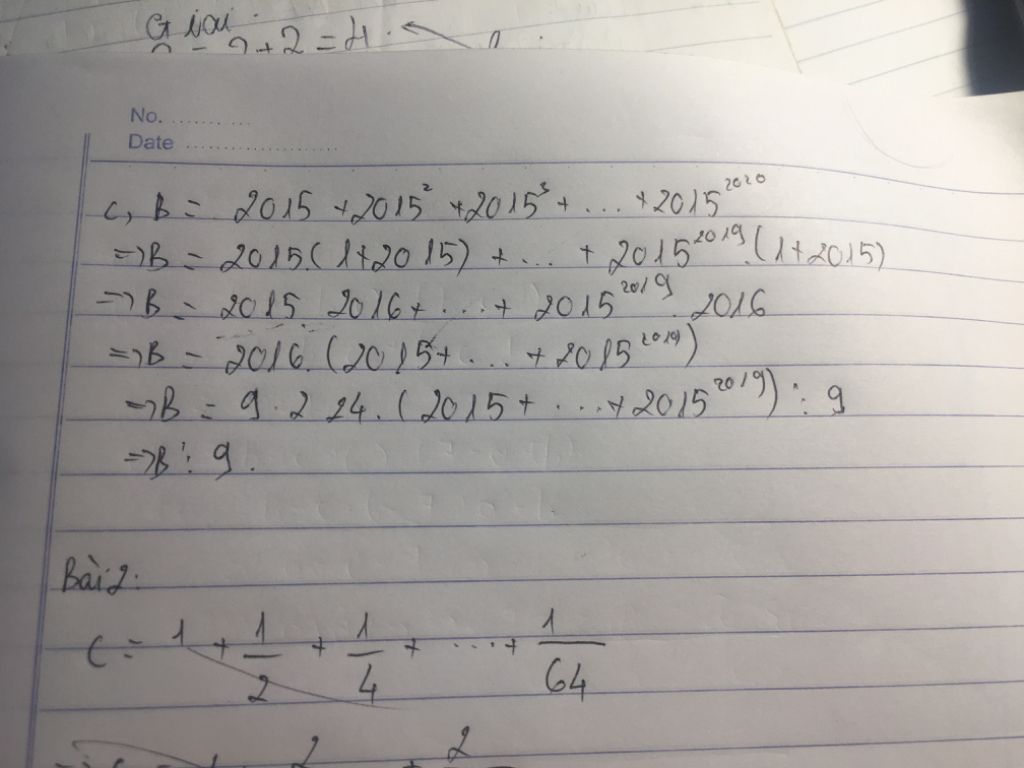 Giải:
2 = 2+2 = 4.
No. ............
Date ......................
c, B = 2015 + 2015² + 2015³ + ... + 2015²⁰²⁰
=> B = 2015.(1+2015) + ... + 2015²⁰¹⁹.(1+2015)
=> B = 2015 2016 + ... + 2015²⁰¹⁹ . 2016
=> B = 2016.(2015+ ... + 2015²⁰¹⁹)
=> B = 9 . 224.(2015 + ... + 2015²⁰¹⁹) ⋮ 9
=> B ⋮ 9.
Bài 2:
C = 1 + 1/2 + 1/4 + ... + 1/64